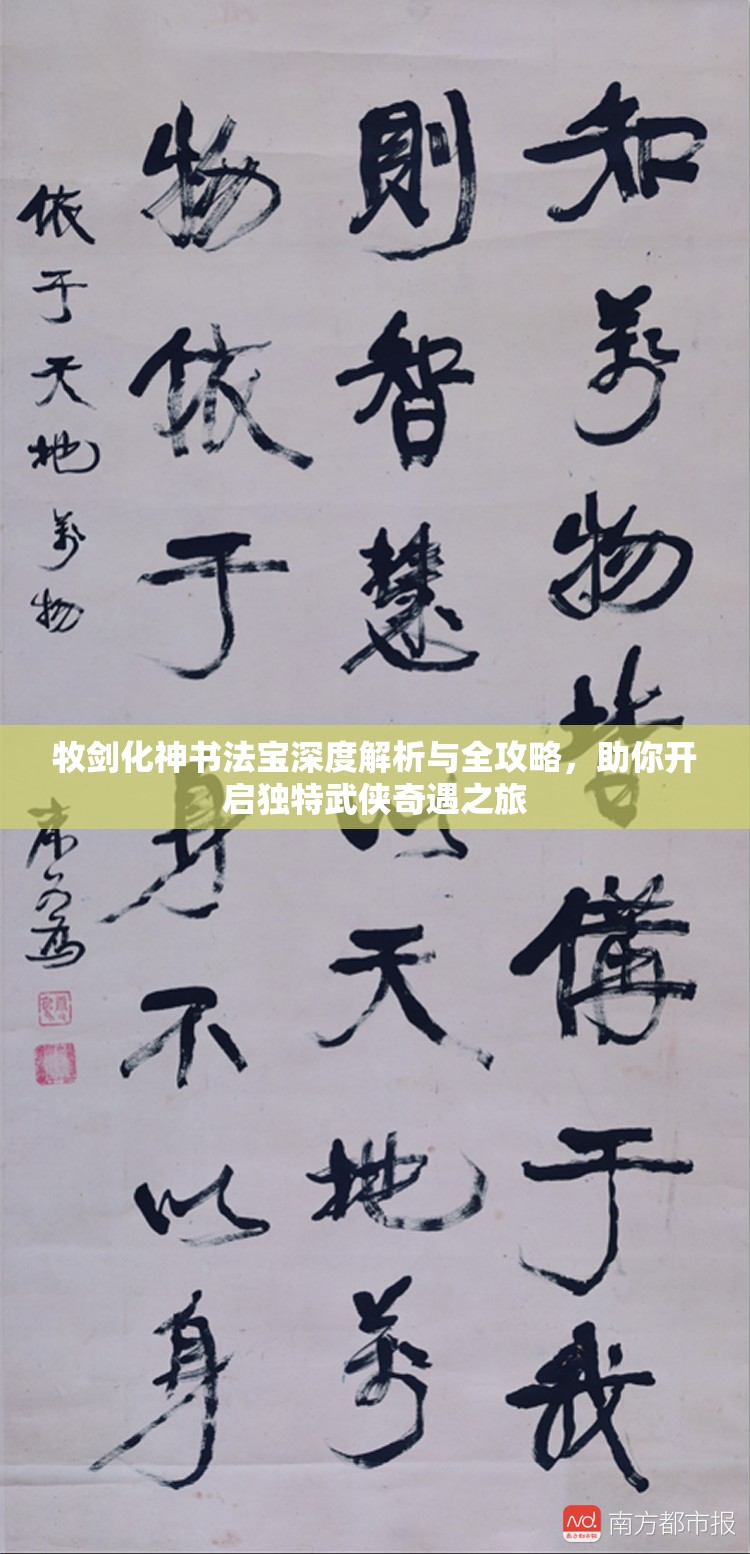 知萬物皆備于我
則智慧以天地萬
物依于身不以身
依于天地萬物
牧剑化神书法宝深度解析与全攻略，助你开
启独特武侠奇遇之旅
Nd.
南方都市报
南方都市报